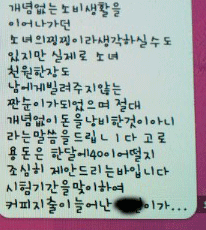 개념없는 소비생활을
이어나가던
소녀의 찡찡이라 생각하실수도
있지만 실제로 소녀
천원한장도
남에게 빌려주지않는
짠순이가 되었으며 절대
개념없이 돈을 낭비한것이아니
라는 말씀을 드립ㄴㅣ다 고로
용돈은 한달에 40이 어떨지
조심히 제안드리는 바입니다
시험기간을 맞이하여
커피지출이 늘어난 이가...